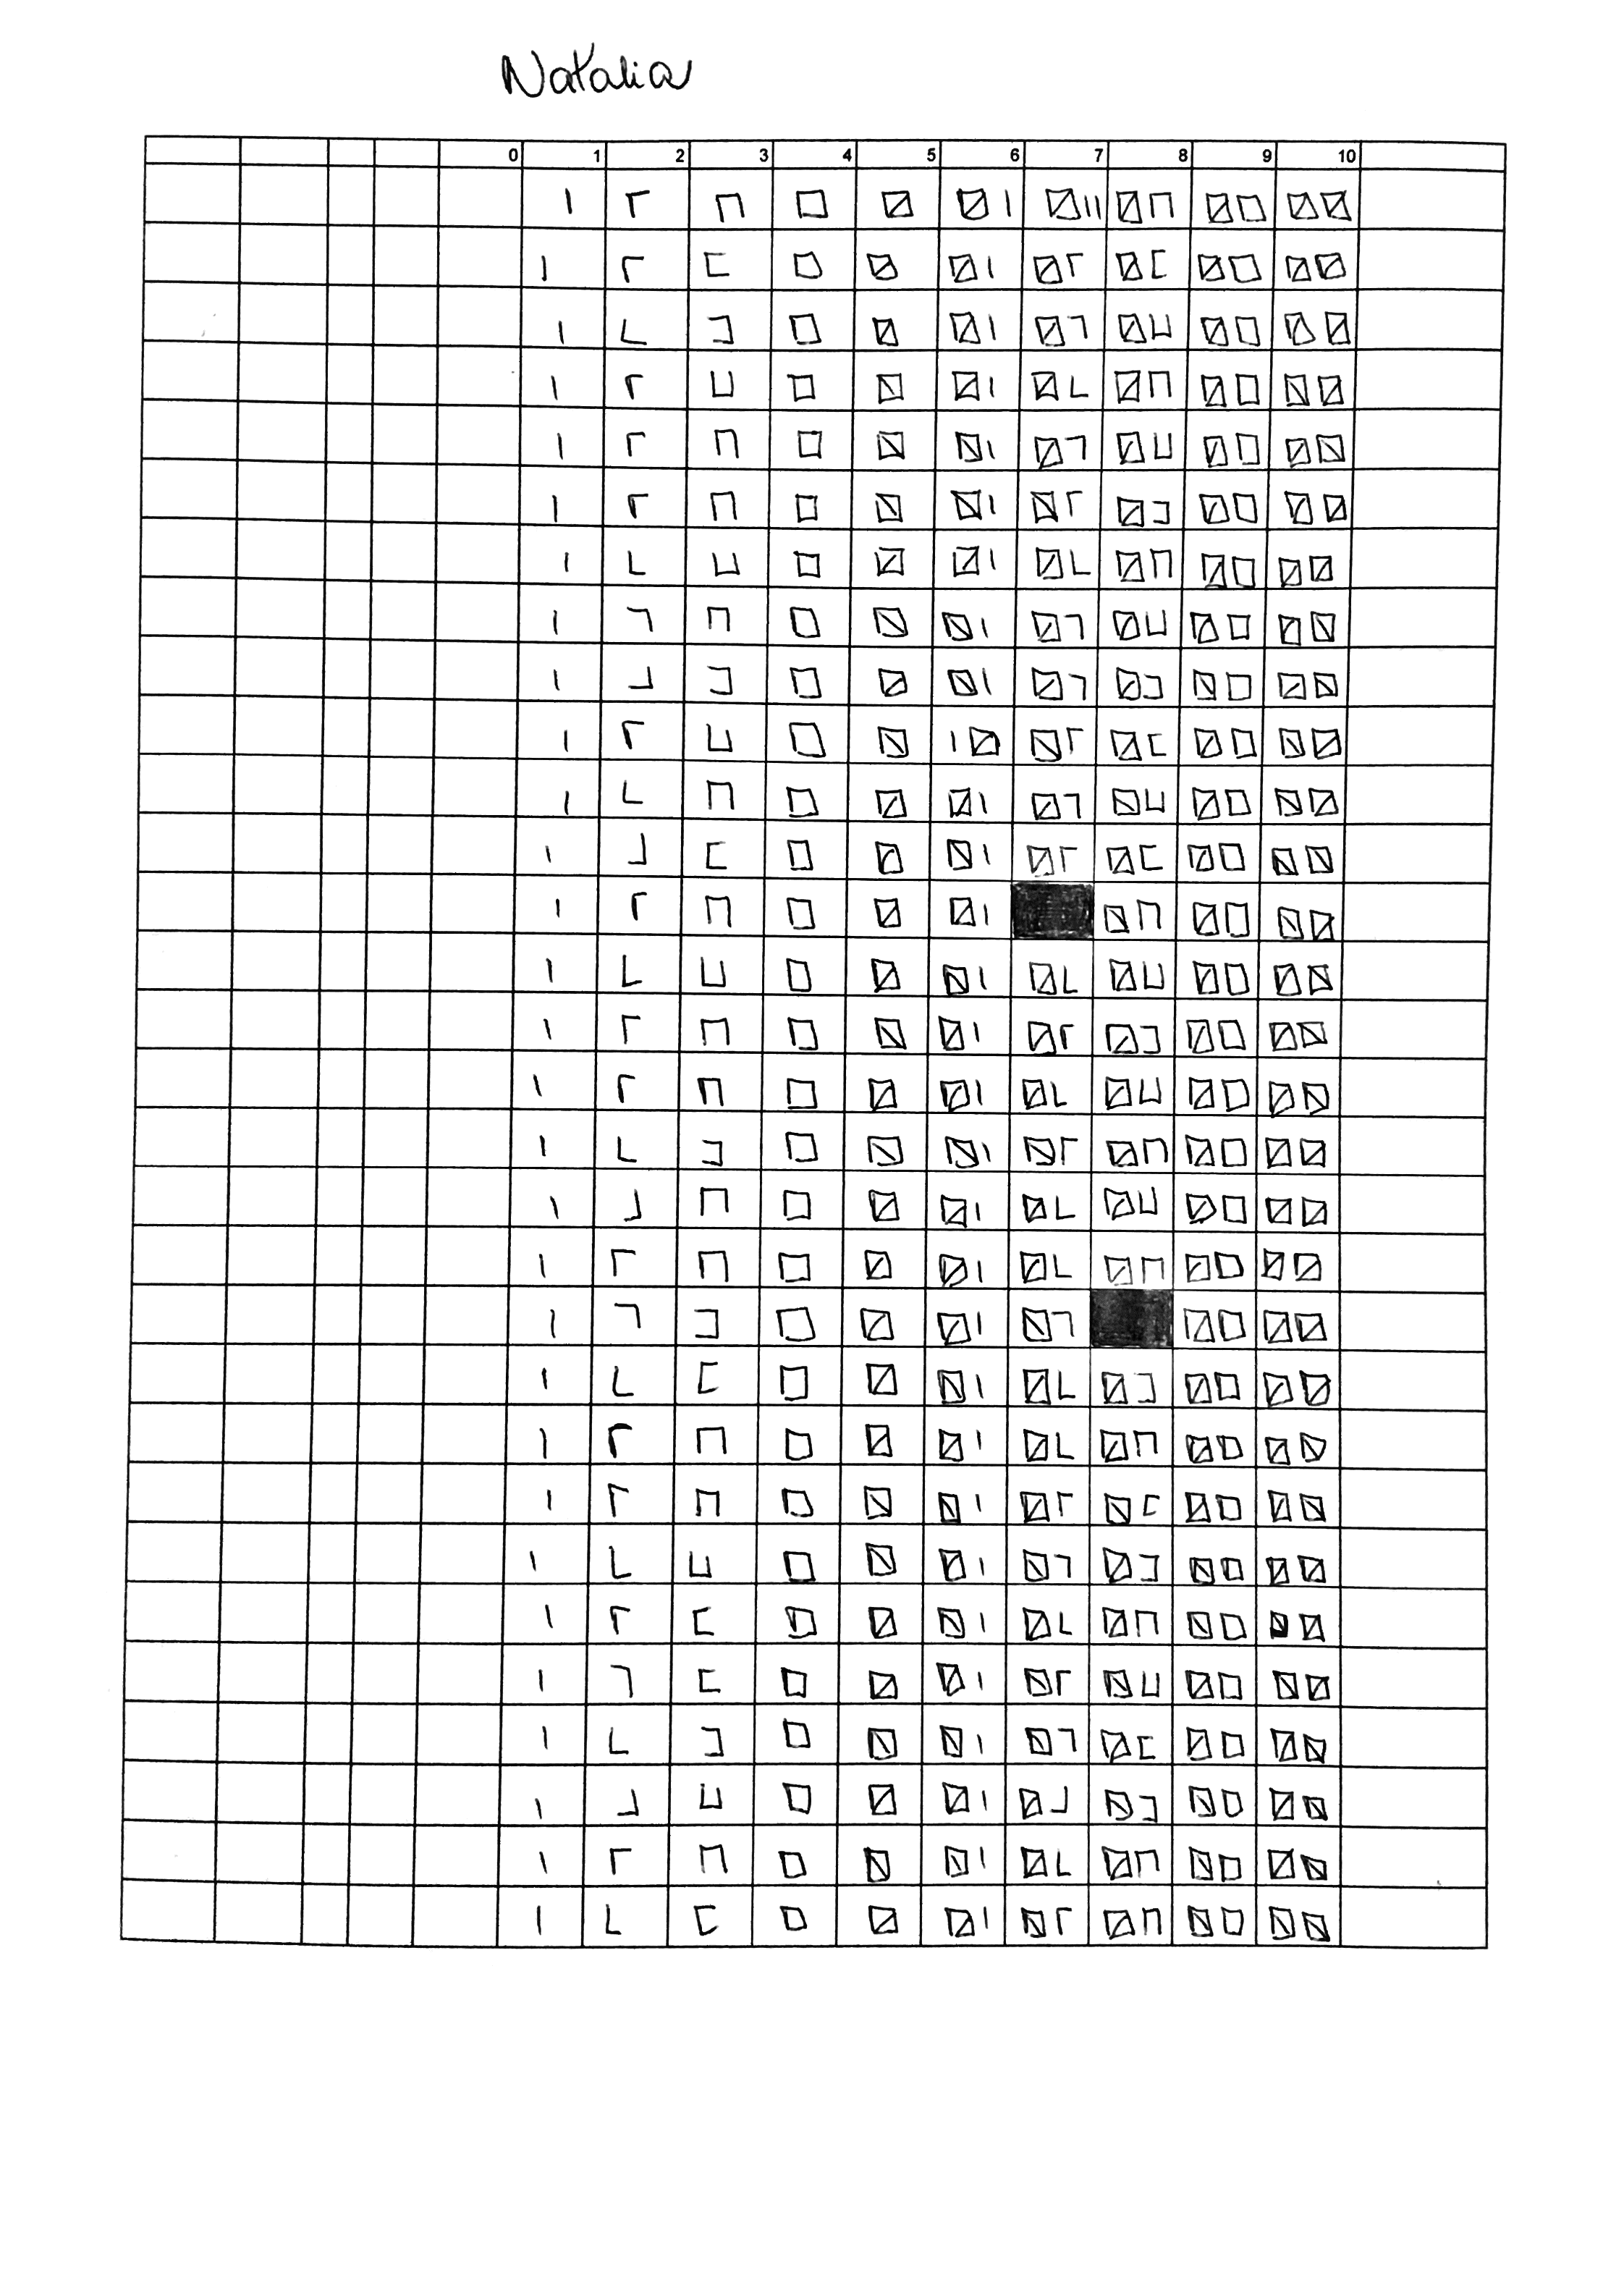 Natalia
0 1 2 3 4 5 6 7 8 9 10